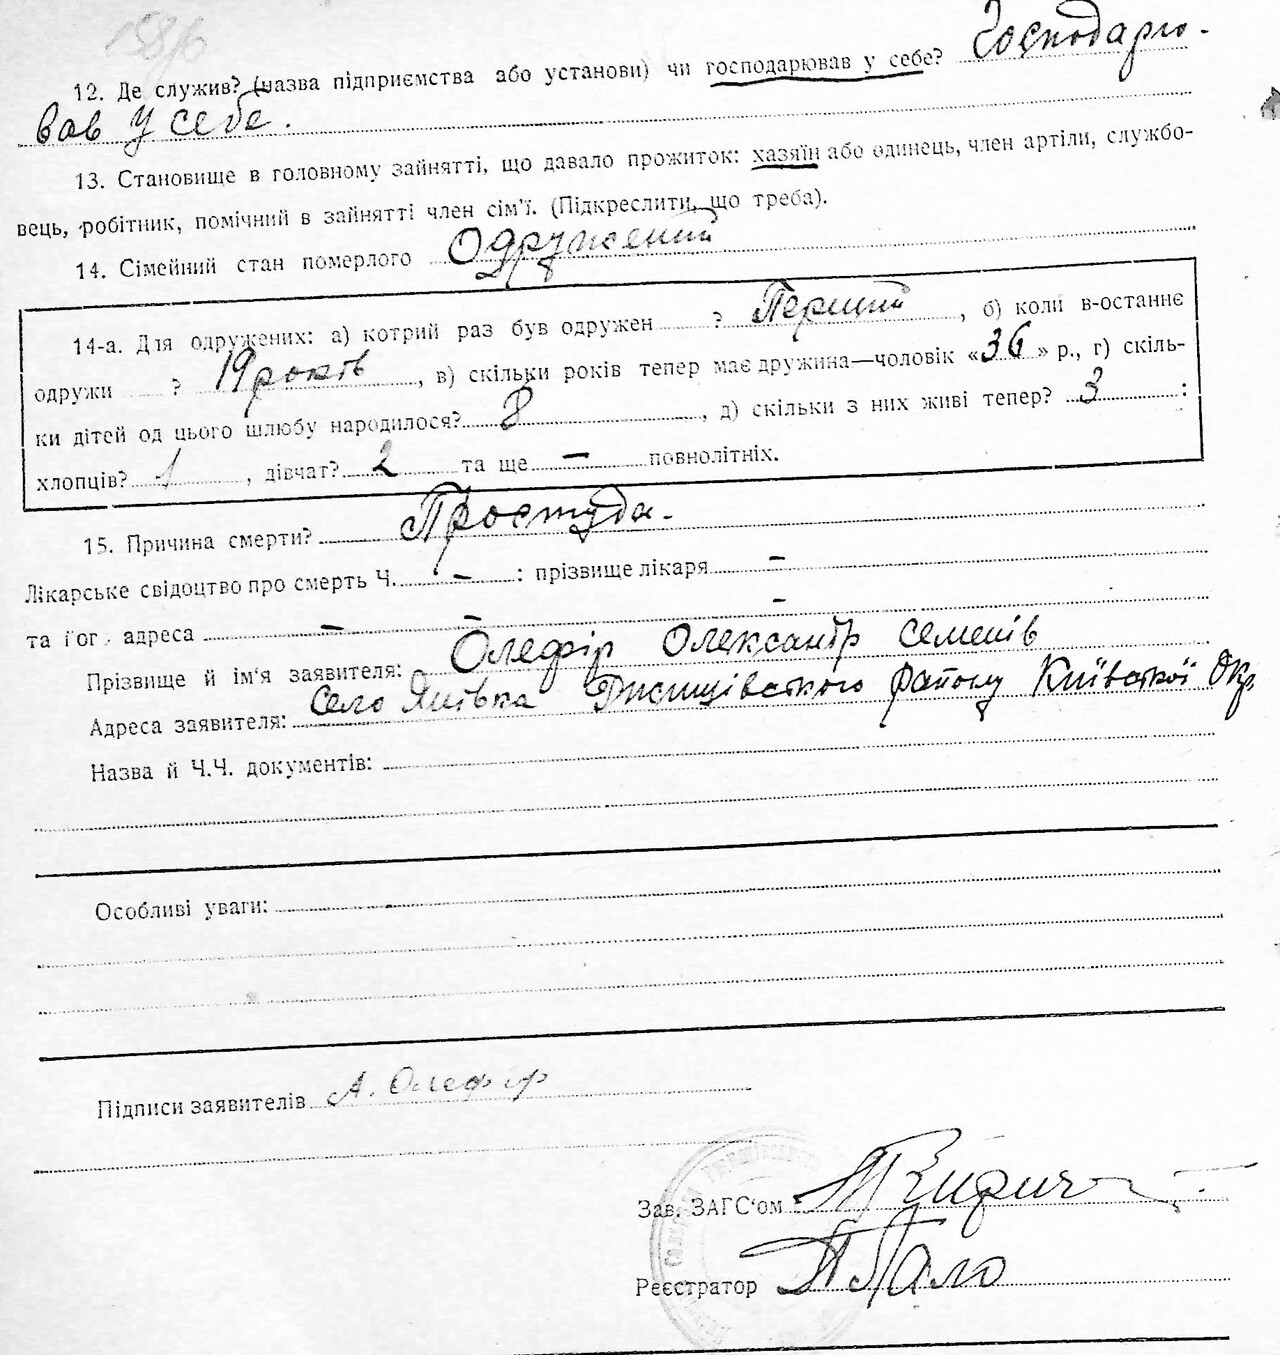 12. Де служив? (назва підприємства або установи) чи господарював у себе? Господарю-
вав у себе.
13. Становище в головному зайнятті, що давало прожиток: хазяїн або одинець, член артіли, службо-
вець, робітник, помічний в зайнятті член сім'ї. (Підкреслити, що треба).
14. Сімейний стан померлого Одружений
14-а. Для одружених: а) котрий раз був одружен ? Перший, б) коли в-останнє
одружи ? 19 років, в) скільки років тепер має дружина—чоловік «36» р., г) скіль-
ки дітей од цього шлюбу народилося? 8, д) скільки з них живі тепер? 3:
хлопців? 1, дівчат? 2 та ще — повнолітніх.
15. Причина смерти? Простуда.
Лікарське свідоцтво про смерть Ч. — : прізвище лікаря —
та його адреса — — —
Прізвище й ім'я заявителя: Олефір Олександр Семенів
Адреса заявителя: Село Янівка району Київської Окр.
Назва й Ч.Ч. документів:
Особливі уваги:
Підписи заявителів А. Олефір
Зав. ЗАГС'ом
Реєстратор